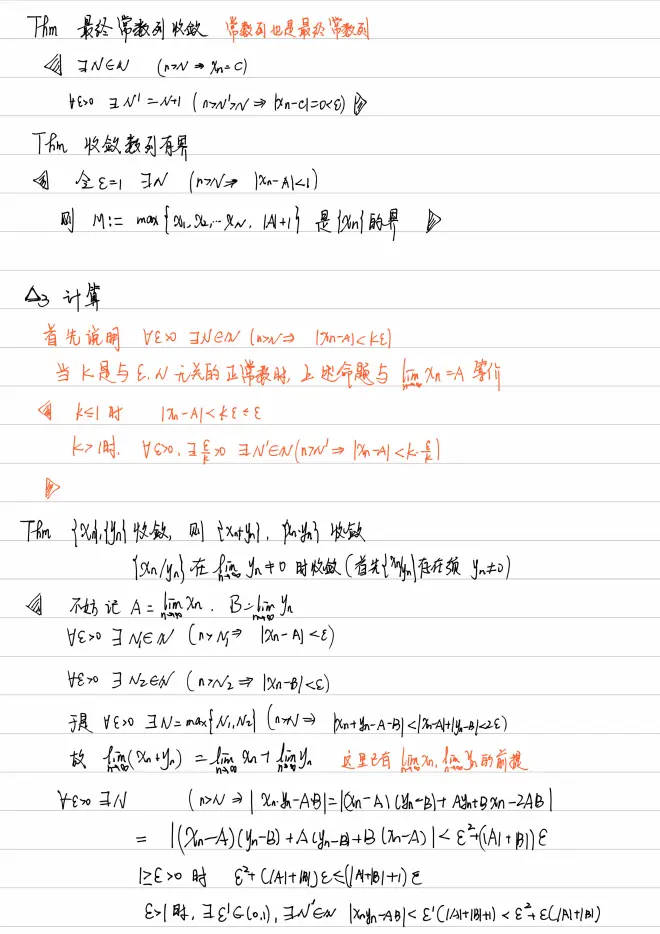 Thm 最终常数列收敛 常数列也是最终常数列
◁ ∃N∈N (n>N ⇒ xn=C)
∀ε>0 ∃N'=N+1 (n>N'>N ⇒ |xn-c|=0<ε) ▷
Thm 收敛数列有界
◁ 令ε=1 ∃N (n>N ⇒ |xn-A|<1)
则 M:= max{x1,x2,…xN, |A|+1} 是{xn}的界 ▷
△3 计算
首先说明 ∀ε>0 ∃N∈N (n>N ⇒ |xn-A|<kε)
当 k是与 ε,N 无关的正常数时, 上述命题与 lim n→∞ xn=A 等价
◁ k≤1 时 |xn-A|<kε≤ε
k>1时, ∀ε>0, ∃ε/k>0 ∃N'∈N (n>N' ⇒ |xn-A|<k·ε/k)
▷
Thm {xn},{yn}收敛, 则 {xn+yn}, {xn·yn} 收敛
{xn/yn} 在 lim n→∞ yn≠0 时收敛 (首先{xn/yn}存在须 yn≠0)
◁ 不妨记 A=lim n→∞ xn, B=lim n→∞ yn
∀ε>0 ∃N1∈N (n>N1 ⇒ |xn-A|<ε)
∀ε>0 ∃N2∈N (n>N2 ⇒ |xn-B|<ε)
于是 ∀ε>0 ∃N=max{N1,N2} (n>N ⇒ |xn+yn-A-B|<|xn-A|+|yn-B|<2ε)
故 lim n→∞ (xn+yn) = lim n→∞ xn + lim n→∞ yn 这里已有 lim n→∞ xn, lim n→∞ yn 的前提
∀ε>0 ∃N (n>N ⇒ |xn·yn-AB|=|(xn-A)(yn-B)+Ayn+Bxn-2AB|
= |(xn-A)(yn-B)+A(yn-B)+B(xn-A)|<ε²+(|A|+|B|)ε
1≥ε>0 时 ε²+(|A|+|B|)ε≤(|A|+|B|+1)ε
ε>1时, ∃ε'∈(0,1), ∃N'∈N |xnyn-AB|<ε'(|A|+|B|+1)<ε²+ε(|A|+|B|)